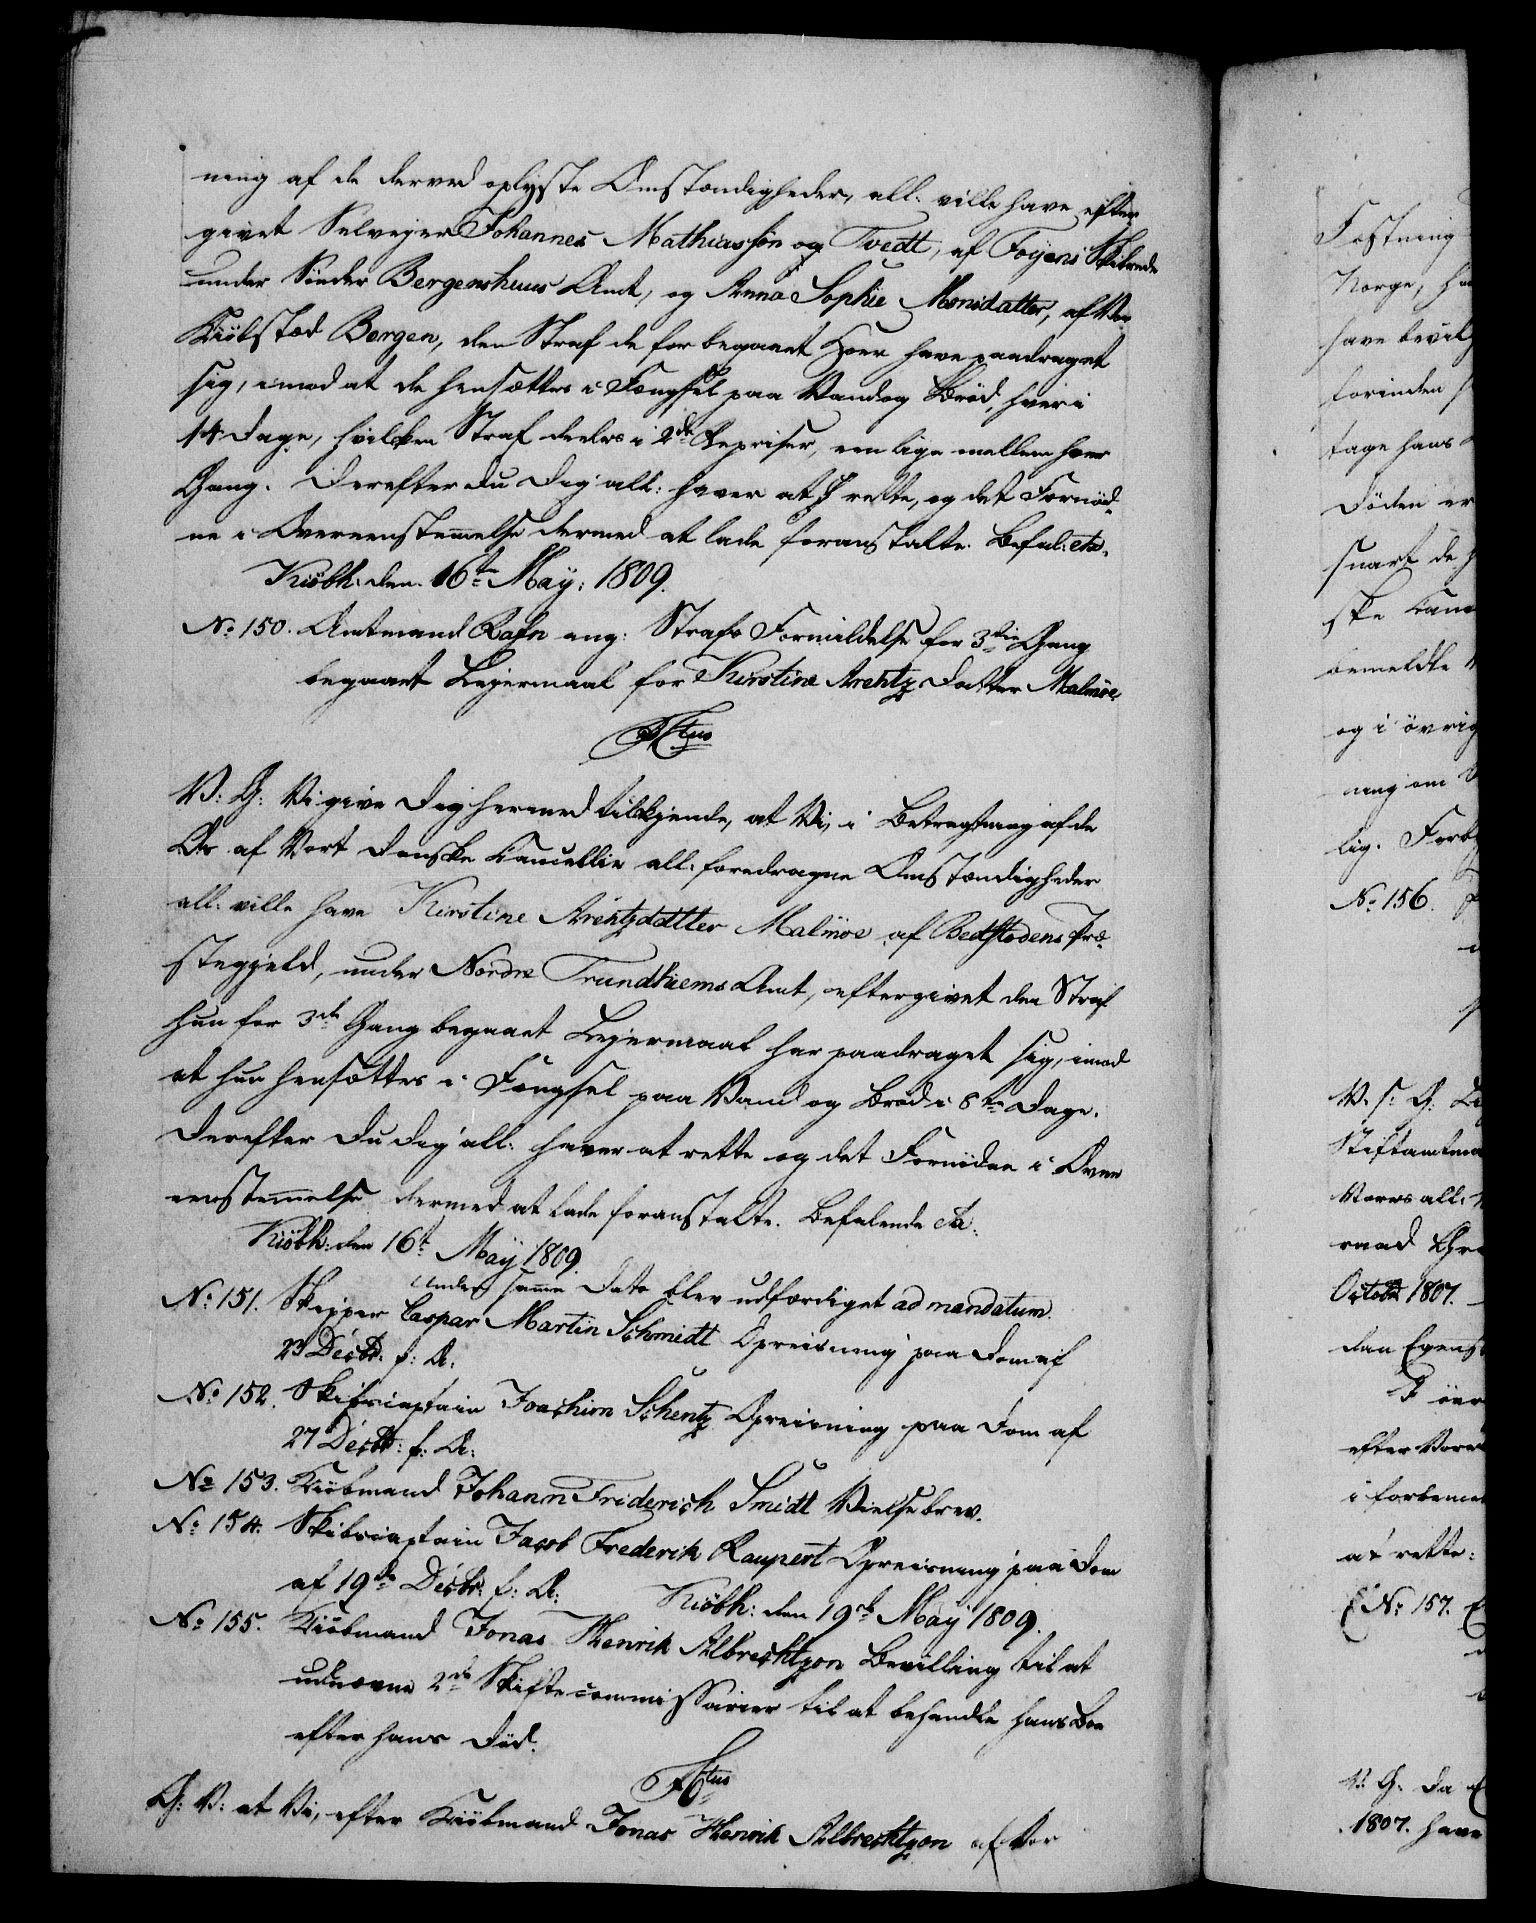 ning af de derved oplyste Omstændigheder, all: ville have efter
givet Selvejer Johannes Mathiassøn og Tvedt, af Føyens Skibrede
under Sönder Bergenshuus Amt, og Anna Sophie Monsdatter, af Vor
Kiöbstæd Bergen, den Straf de for begaaet Hoer have paadraget
sig, imod at de hensættes i Fængsel paa Vand og Bröd, hver i
14 Dage, hvilken Straf deeles i 2de Repriser, een Uge mellem hver
Gang. Derefter Du Dig all: haver at rette, og det Fornöd-
ne i Overeenstemmelse dermed at lade foranstalte. Befal: etc.
Kiöbh: den 16te May: 1809.
No 150. Amtmand Rafn ang: Strafs Formildelse for 3die Gang
begaaet Lejermaal for Kirstine Arentz Datter Malmöe.
F 6tus
V: G: Vi give Dig hermed tilkjende, at Vi, i Betragtning af de
Os af Vort Danske Cancellie all: foredragne Omstændigheder
all: ville have Kirstine Arentzdatter Malmöe af Bedstadens Præ-
stegjeld, under Nordre Trundhiems Amt, eftergivet den Straf
hun for 3de Gang begaaet Lejermaal har paadraget sig, imod
at hun hensættes i Fængsel paa Vand og Bröd i 8te Dage.
Derefter Du Dig all: haver at rette og det Fornödne i Over
eenstemmelse dermed at lade foranstalte. Befalende etc:
Kiöbh: den 16t May 1809.
Under samme Dato blev udfærdiget ad mandatum.
No 151. Skipper Caspar Martin Schmidt Opreisning paa Dom af
23 Decbr: f: A:
No 152. Skibscaptain Joachim Schentz Opreisning paa Dom af
27 Decbr: f: A:
No 153. Kiöbmand Johann Friderich Smidt Vielsebrev.
No 154. Skibscaptain Jacob Frederik Raupert Opreisning paa Dom
af 19de Decbr: f: A:
Kiöbh: den 19de May 1809.
No 155. Kiöbmand Jonas Henrik Albrechtzon Bevilling til at
udnævne 2de Skiftecommissarier til at behandle hans Boe
efter hans Död.
F 6tus
G: V: at Vi, efter Kiöbmand Jonas Henrik Albrechtzon af Vor
Fæstning
Norge, ha
have bevilg
forinden
tage hans
Döden er
snart de
ske Canc
bemeldte
og i övrig
ning om
lig. Forb
No 156.
V. s: G:
Stiftamtma
Vores all:
raad
October 1807.
den
efter Vores
i forbeme
at rette:
No 157.
V: G: Da
1807. have